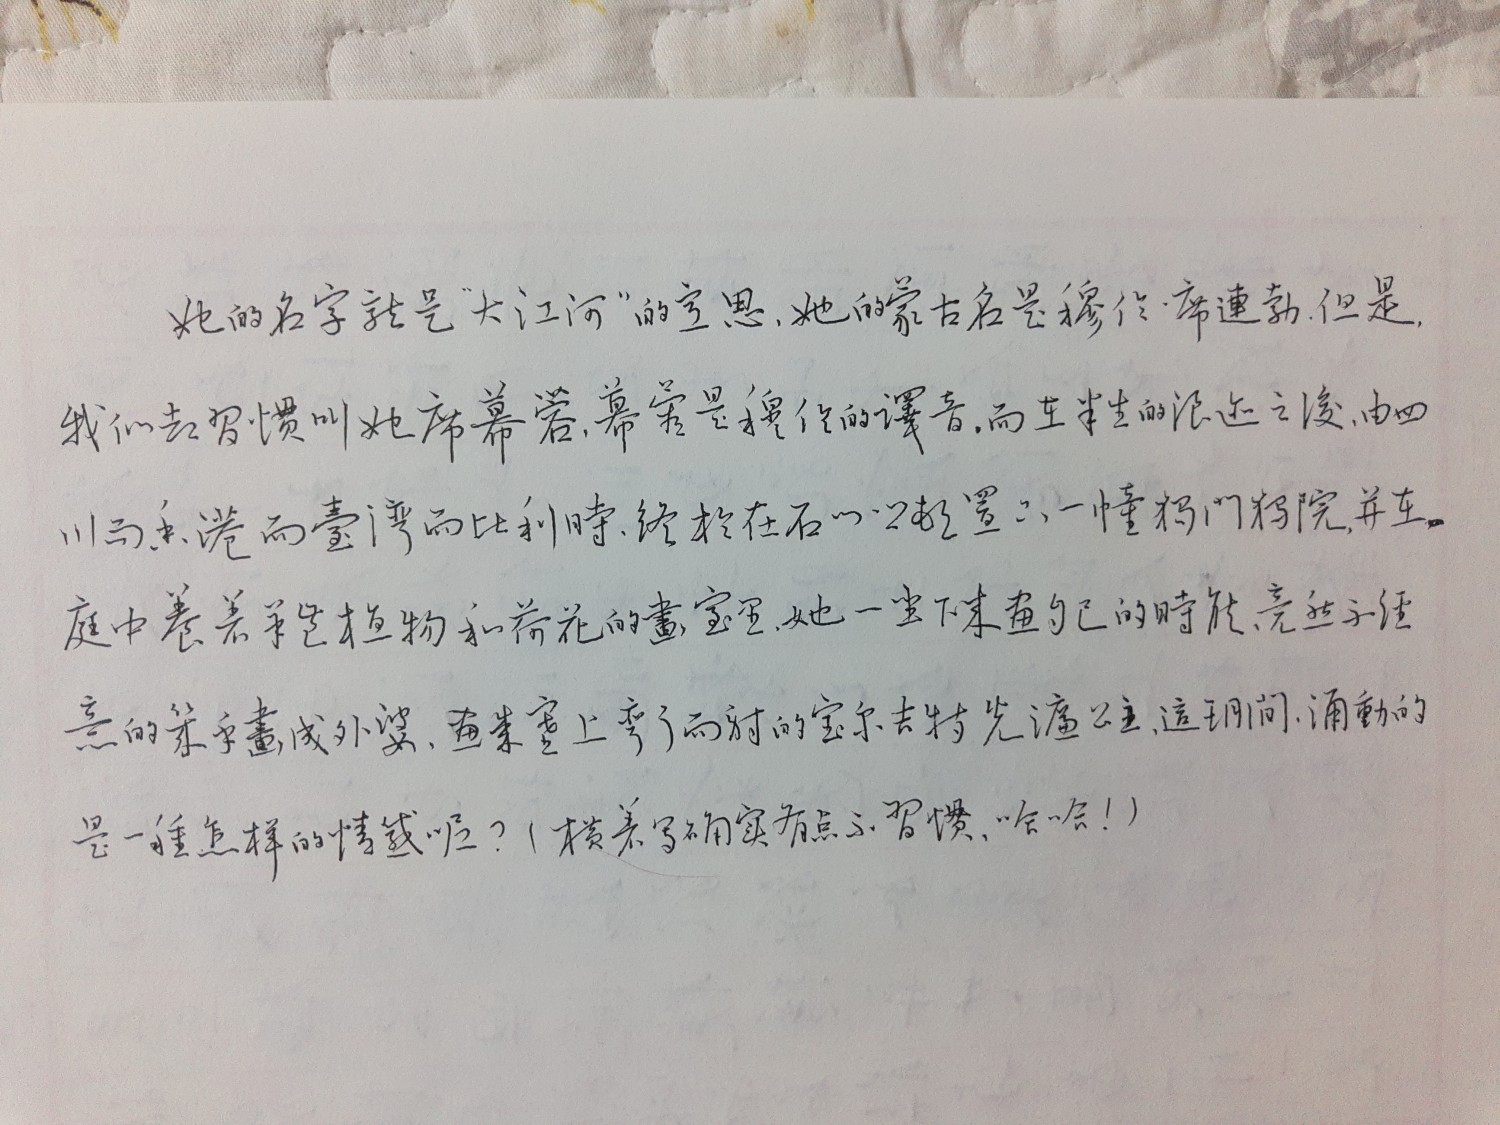 她的名字就是“大江河”的意思，她的蒙古名是穆伦·席連勃.但是，
我们却習慣叫她席幕蓉，幕蓉是穆伦的譯音。而在半生的浪迹之後，由四
川而香港而臺湾而比利時，終於在石门乡間置了一幢獨门獨院，并在
庭中養着羊齒植物和荷花的畫室里，她一坐下來畫自己的時候，竟然不经
意的筆手畫成外婆，畫來塞上弯弓而射的宝尔吉特光濂公主，這期间，涌動的
是一種怎样的情感呢？（横着写确实有点不習慣，哈哈！）